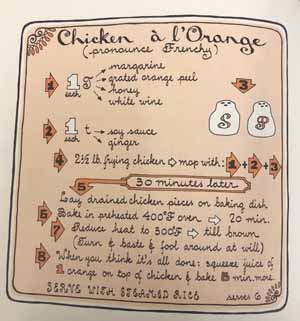 Chicken à l'Orange
(pronounce Frenchy)
1 1 T each → margarine
→ grated orange peel
→ honey
→ white wine
3
S P
2 1 t each → soy sauce
→ ginger
4 2½ lb. frying chicken → mop with: 1 + 2 + 3
5 30 minutes later
Lay drained chicken pieces on baking dish
6 Bake in preheated 400°F oven → 20 min.
7 Reduce heat to 300°F → till brown
(Turn & baste & fool around at will)
8 When you think it's all done: squeeze juice of
1 orange on top of chicken & bake 5 min. more.
SERVE WITH STEAMED RICE serves 6